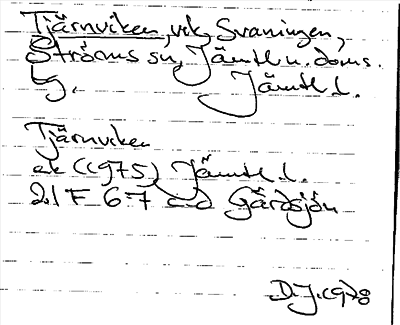 Tjärnviken, vik, Svaningen,
Ströms sn, Jämtl. n. doms.
Jämtl. l.
Tjärnviken
ek (1975) Jämtl. l.
21 F 6-7 c-d Gårdsjön
D.J. 1978